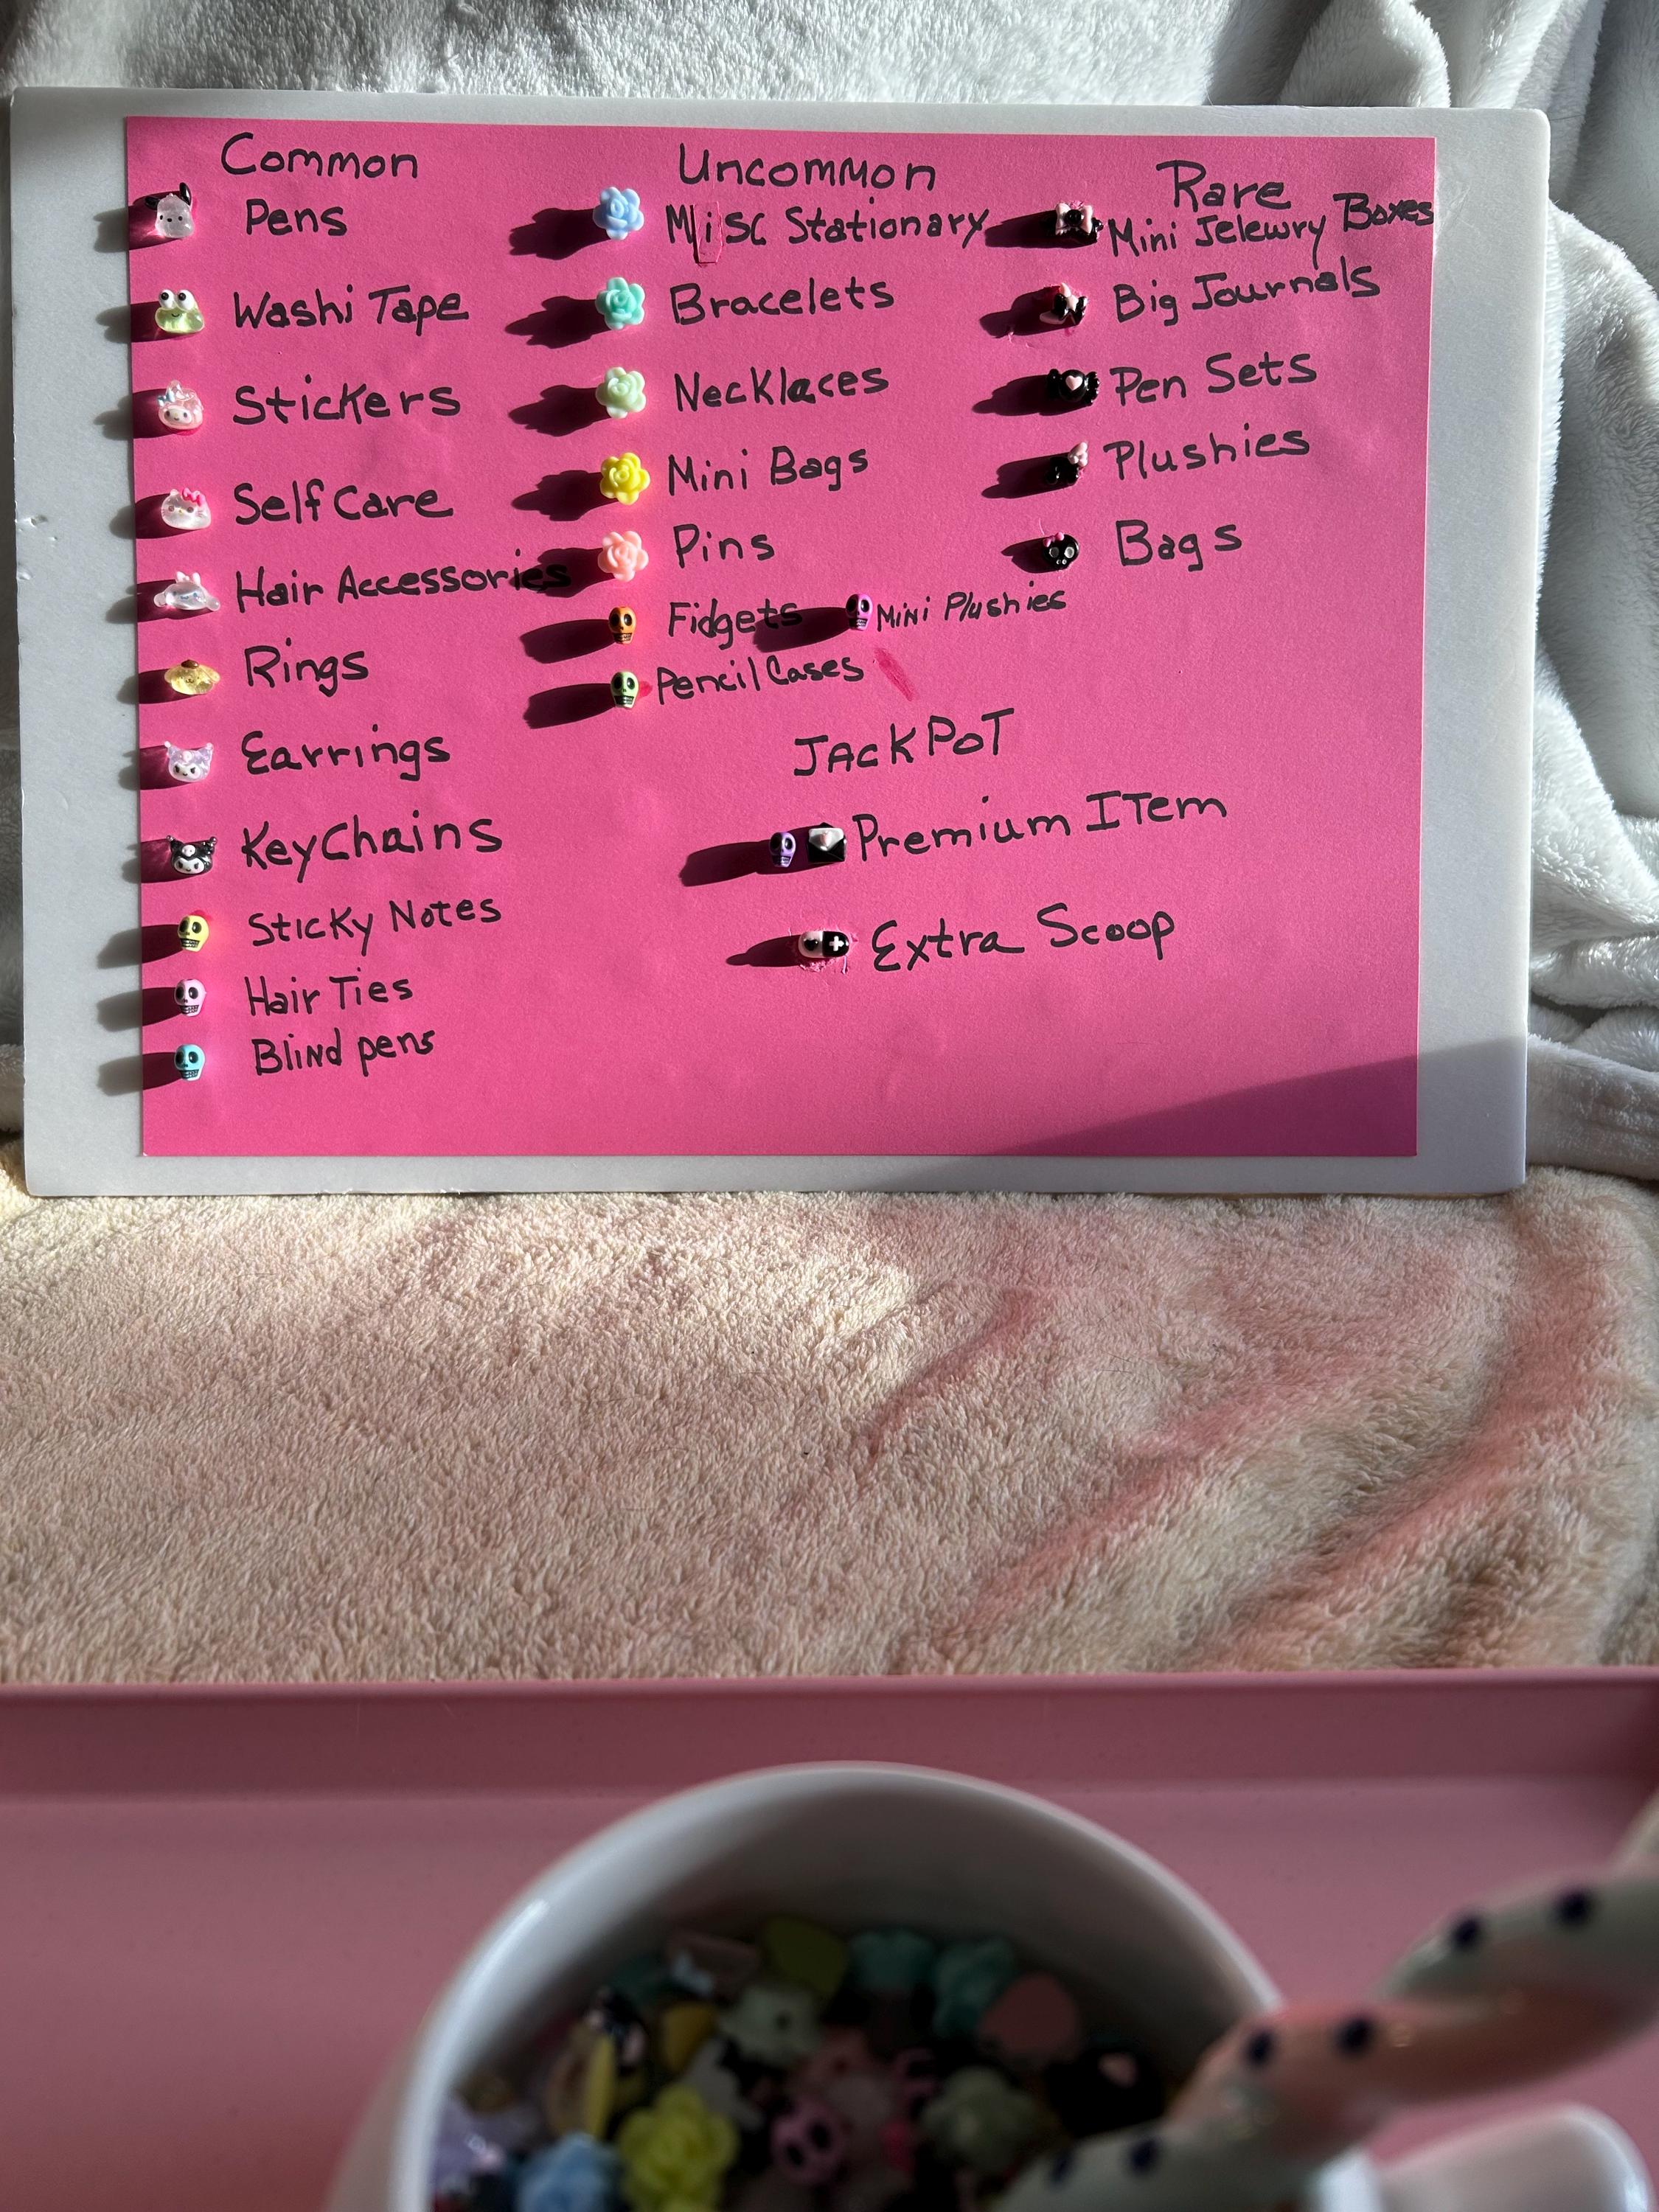 Common
Pens
Washi Tape
Stickers
Self Care
Hair Accessories
Rings
Earrings
KeyChains
Sticky Notes
Hair Ties
Blind pens
Uncommon
Misc Stationary
Bracelets
Necklaces
Mini Bags
Pins
Fidgets
Mini Plushies
Pencil Cases
Rare
Mini Jelewry Boxes
Big Journals
Pen Sets
Plushies
Bags
JACKPOT
Premium ITem
Extra Scoop